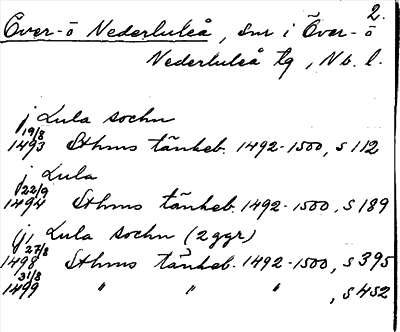 2.
Över- ö Nederluleå, snr i Över- ö
Nederluleå tg, Nb. l.
j Lula sochn
19/8
1493 Sthms tänkeb. 1492-1500, s 112
j Lula
22/9
1494 Sthms tänkeb. 1492-1500, s 189
(j) Lula sochn (2 ggr)
27/8
1498 Sthms tänkeb. 1492-1500, s 395
31/8
1499 " " " , s 452